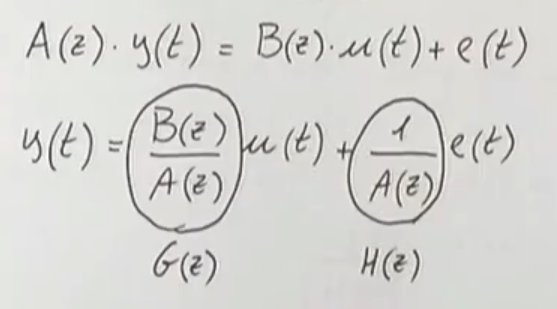 A(z) · y(t) = B(z) · u(t) + e(t)
y(t) = B(z)/A(z) u(t) + 1/A(z) e(t)
G(z) H(z)